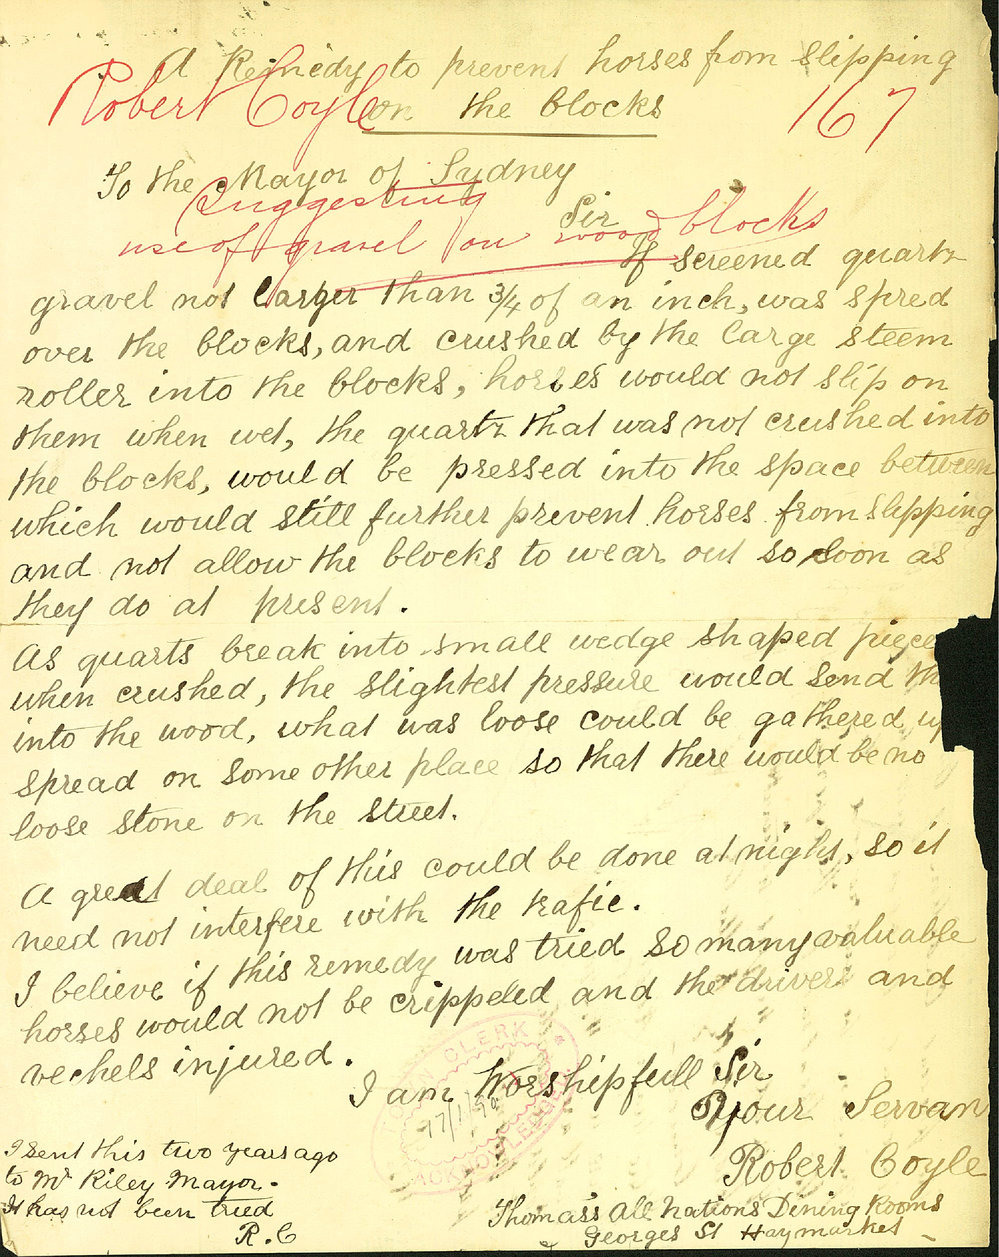 A Remedy to prevent horses from slipping
Robert Coyle on the blocks 167
To the Mayor of Sydney
Suggesting
Sir
use of gravel on wood blocks
If screened quartz
gravel not larger than 3/4 of an inch, was spred
over the blocks, and crushed by the large steem
roller into the blocks, horses would not slip on
them when wet, the quartz that was not crushed into
the blocks, would be pressed into the space between
which would still further prevent horses from slipping
and not allow the blocks to wear out so soon as
they do at present.
As quarts break into small wedge shaped piece
when crushed, the slightest pressure would send th
into the wood, what was loose could be gathered up
spread on some other place so that there would be no
loose stone on the street.
A great deal of this could be done at night, so it
need not interfere with the trafic.
I believe if this remedy was tried so many valuable
horses would not be crippeled and the drivers and
vechels injured.
I am Worshipfull Sir
Your Servan
Robert Coyle
Thomas's All Nations Dining Rooms
Georges St Haymarket
I sent this two years ago
to Mr Riley Mayor.
It has not been tried
R.C
TOWN CLERK
17/1/90
ACKNOWLEDGED